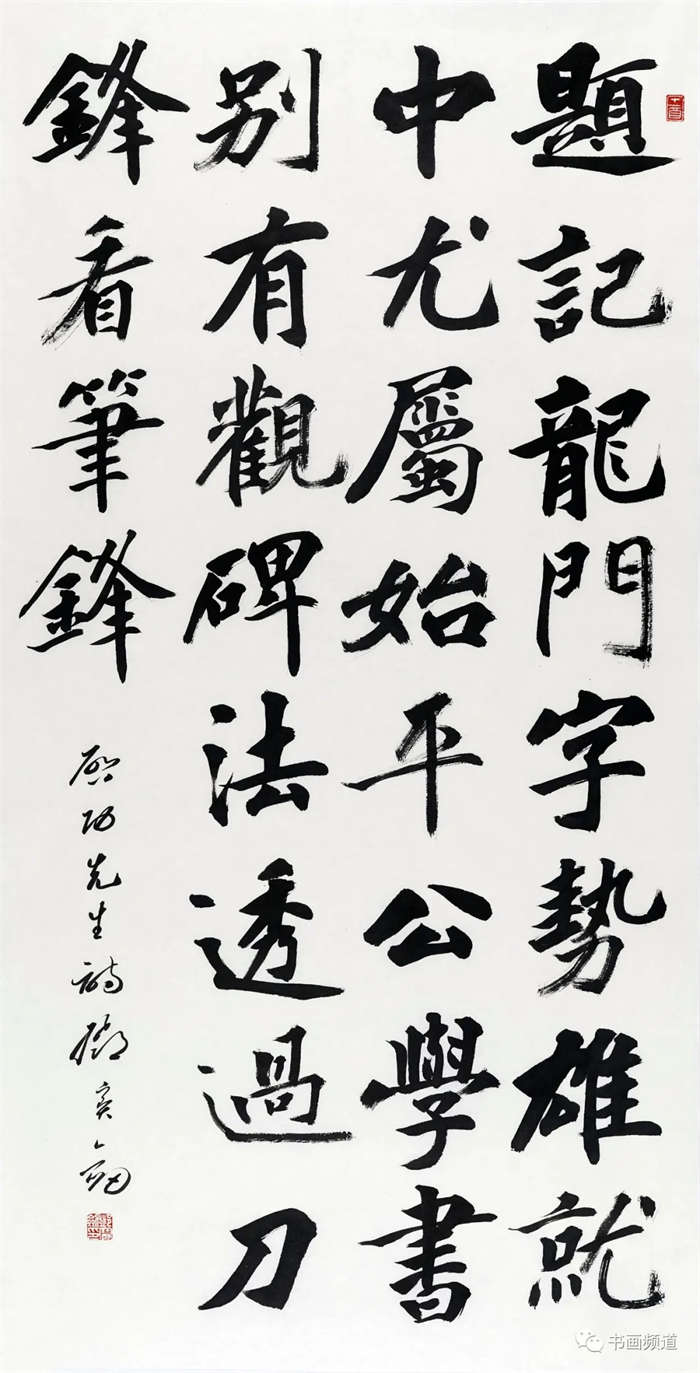 題記龍門字勢雄就
中尤屬始平公學書
別有觀碑法透過刀
鋒看筆鋒
啟功先生詩鄧寶劍
书画频道